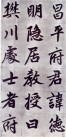 昌平府君德
明隱居教授曰
樊川處士者府